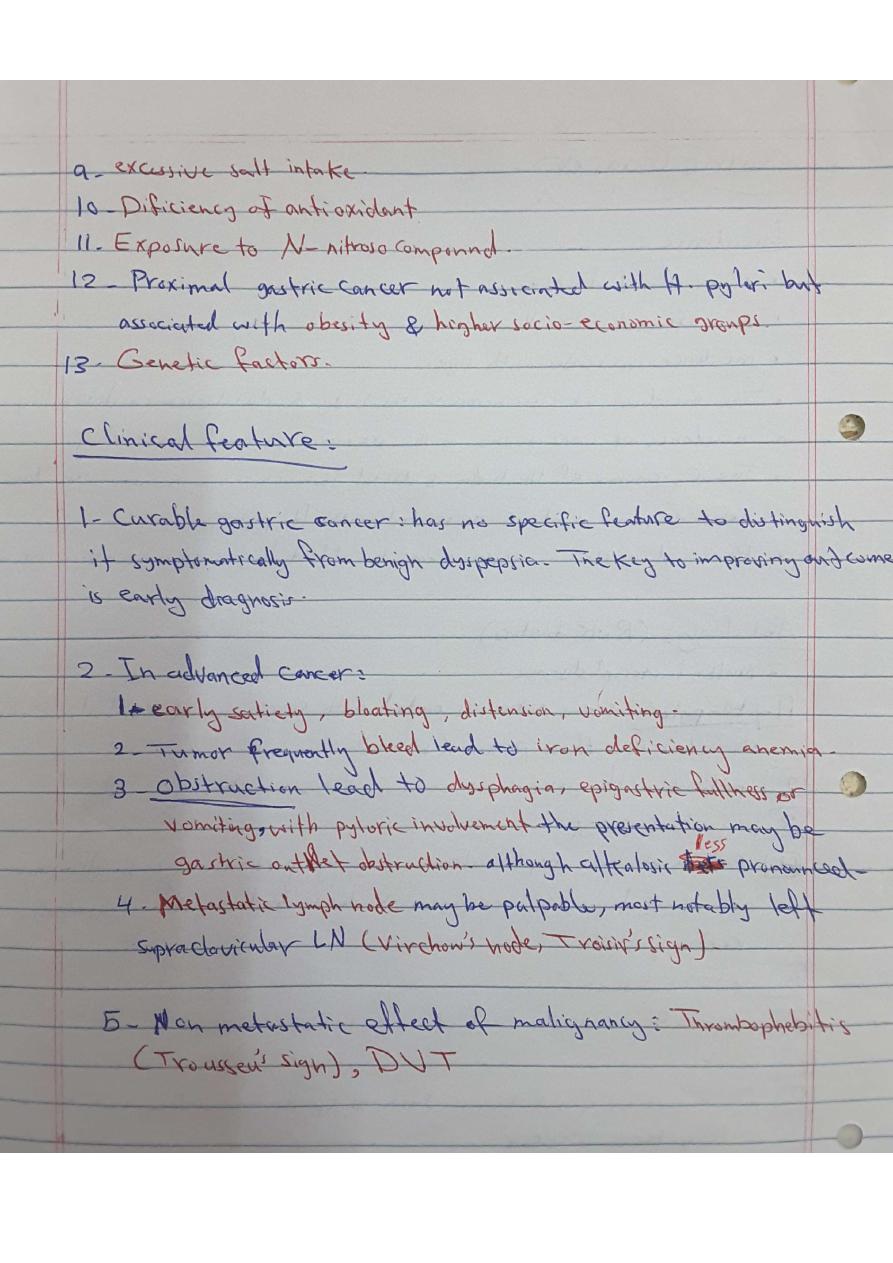 9- excessive salt intake.
10- Dificiency of antioxidant
11- Exposure to N-nitroso compound.
12- Proximal gastric cancer not associated with H. pylori but
associated with obesity & higher socio-economic groups.
13- Genetic factors.
Clinical feature:
1- Curable gastric cancer: has no specific feature to distinguish
it symptomatically from benign dyspepsia. The key to improving outcome
is early diagnosis.
2- In advanced cancer:
1- early satiety, bloating, distension, vomiting.
2- Tumor frequently bleed lead to iron deficiency anemia.
3- Obstruction lead to dysphagia, epigastric fullness or
vomiting, with pyloric involvement the presentation may be
gastric outlet obstruction. although alkalosis less pronounced
4- Metastatic lymph node may be palpable, most notably left
supraclavicular LN (Virchow's node, Troisir's sign).
5- Non metastatic effect of malignancy: Thrombophebitis
(Trousseu's sign), DVT